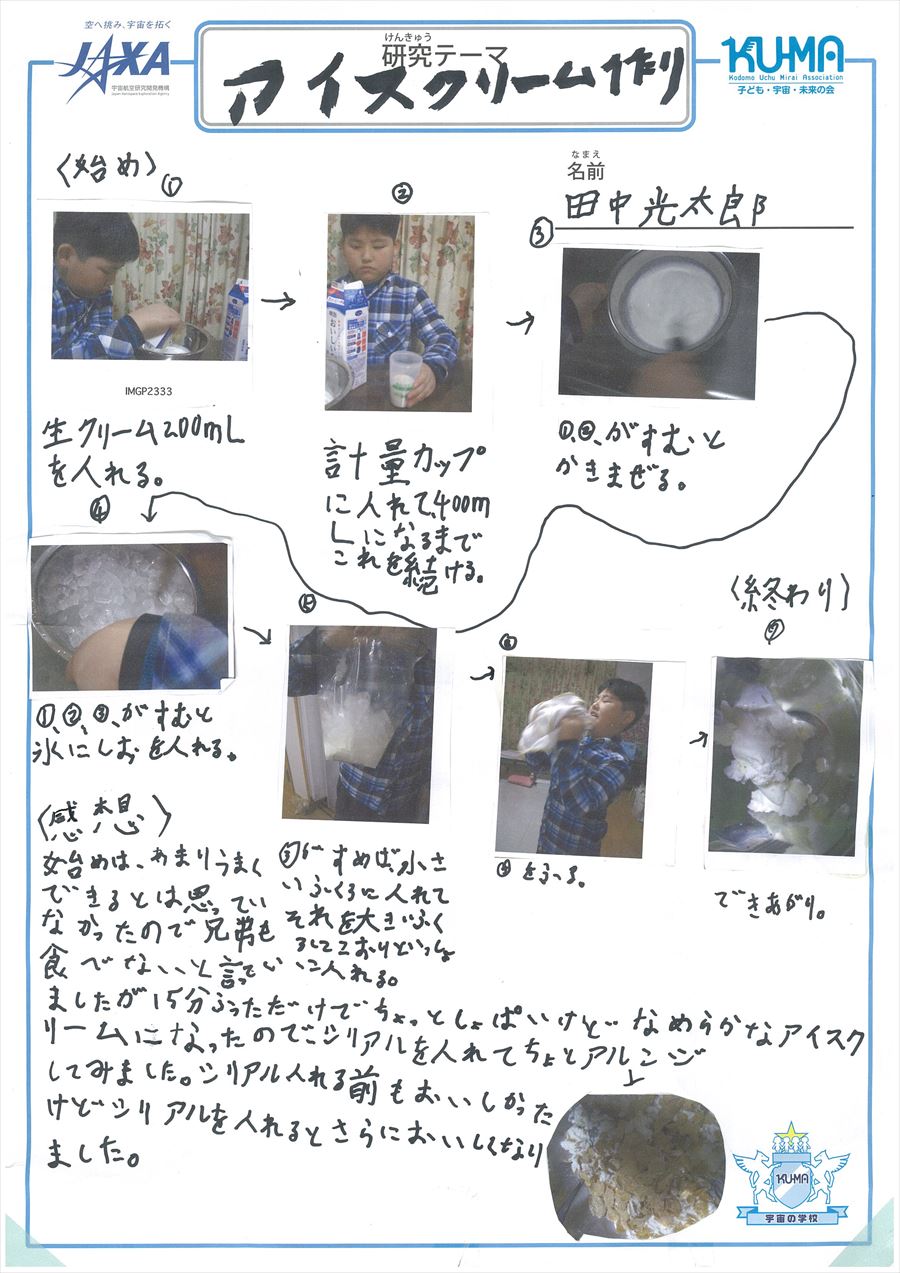 空へ挑み、宇宙を拓く
JAXA
宇宙航空研究開発機構
Japan Aerospace Exploration Agency
けんきゅう
研究テーマ
アイスクリーム作り
KUMA
Kodomo Uchu Mirai Association
子ども・宇宙・未来の会
なまえ
名前
田中光太郎
〈始め〉
①
②
③
おいしい
IMGP2333
生クリーム200mL
を入れる。
計量カップ
に入れて、400m
Lになるまで
これを続ける。
①、②、がすむと
かきまぜる。
④
①、②、③、がすむと
氷にしおを入れる。
⑤
⑤がすめば、小さ
いふくろに入れて
それを大きいふく
ろにこおりといっしょ
に入れる。
⑥
をふる。
〈終わり〉
⑦
できあがり。
〈感想〉
始めは、あまりうまく
できるとは思ってい
なかったので兄弟も
食べないと言ってい
ましたが15分ふっただけでちょっとしょぱいけどなめらかなアイスク
リームになったのでシリアルを入れてちょとアルンジ
してみました。シリアル入れる前もおいしかった
けどシリアルを入れるとさらにおいしくなり
ました。
KUMA
宇宙の学校